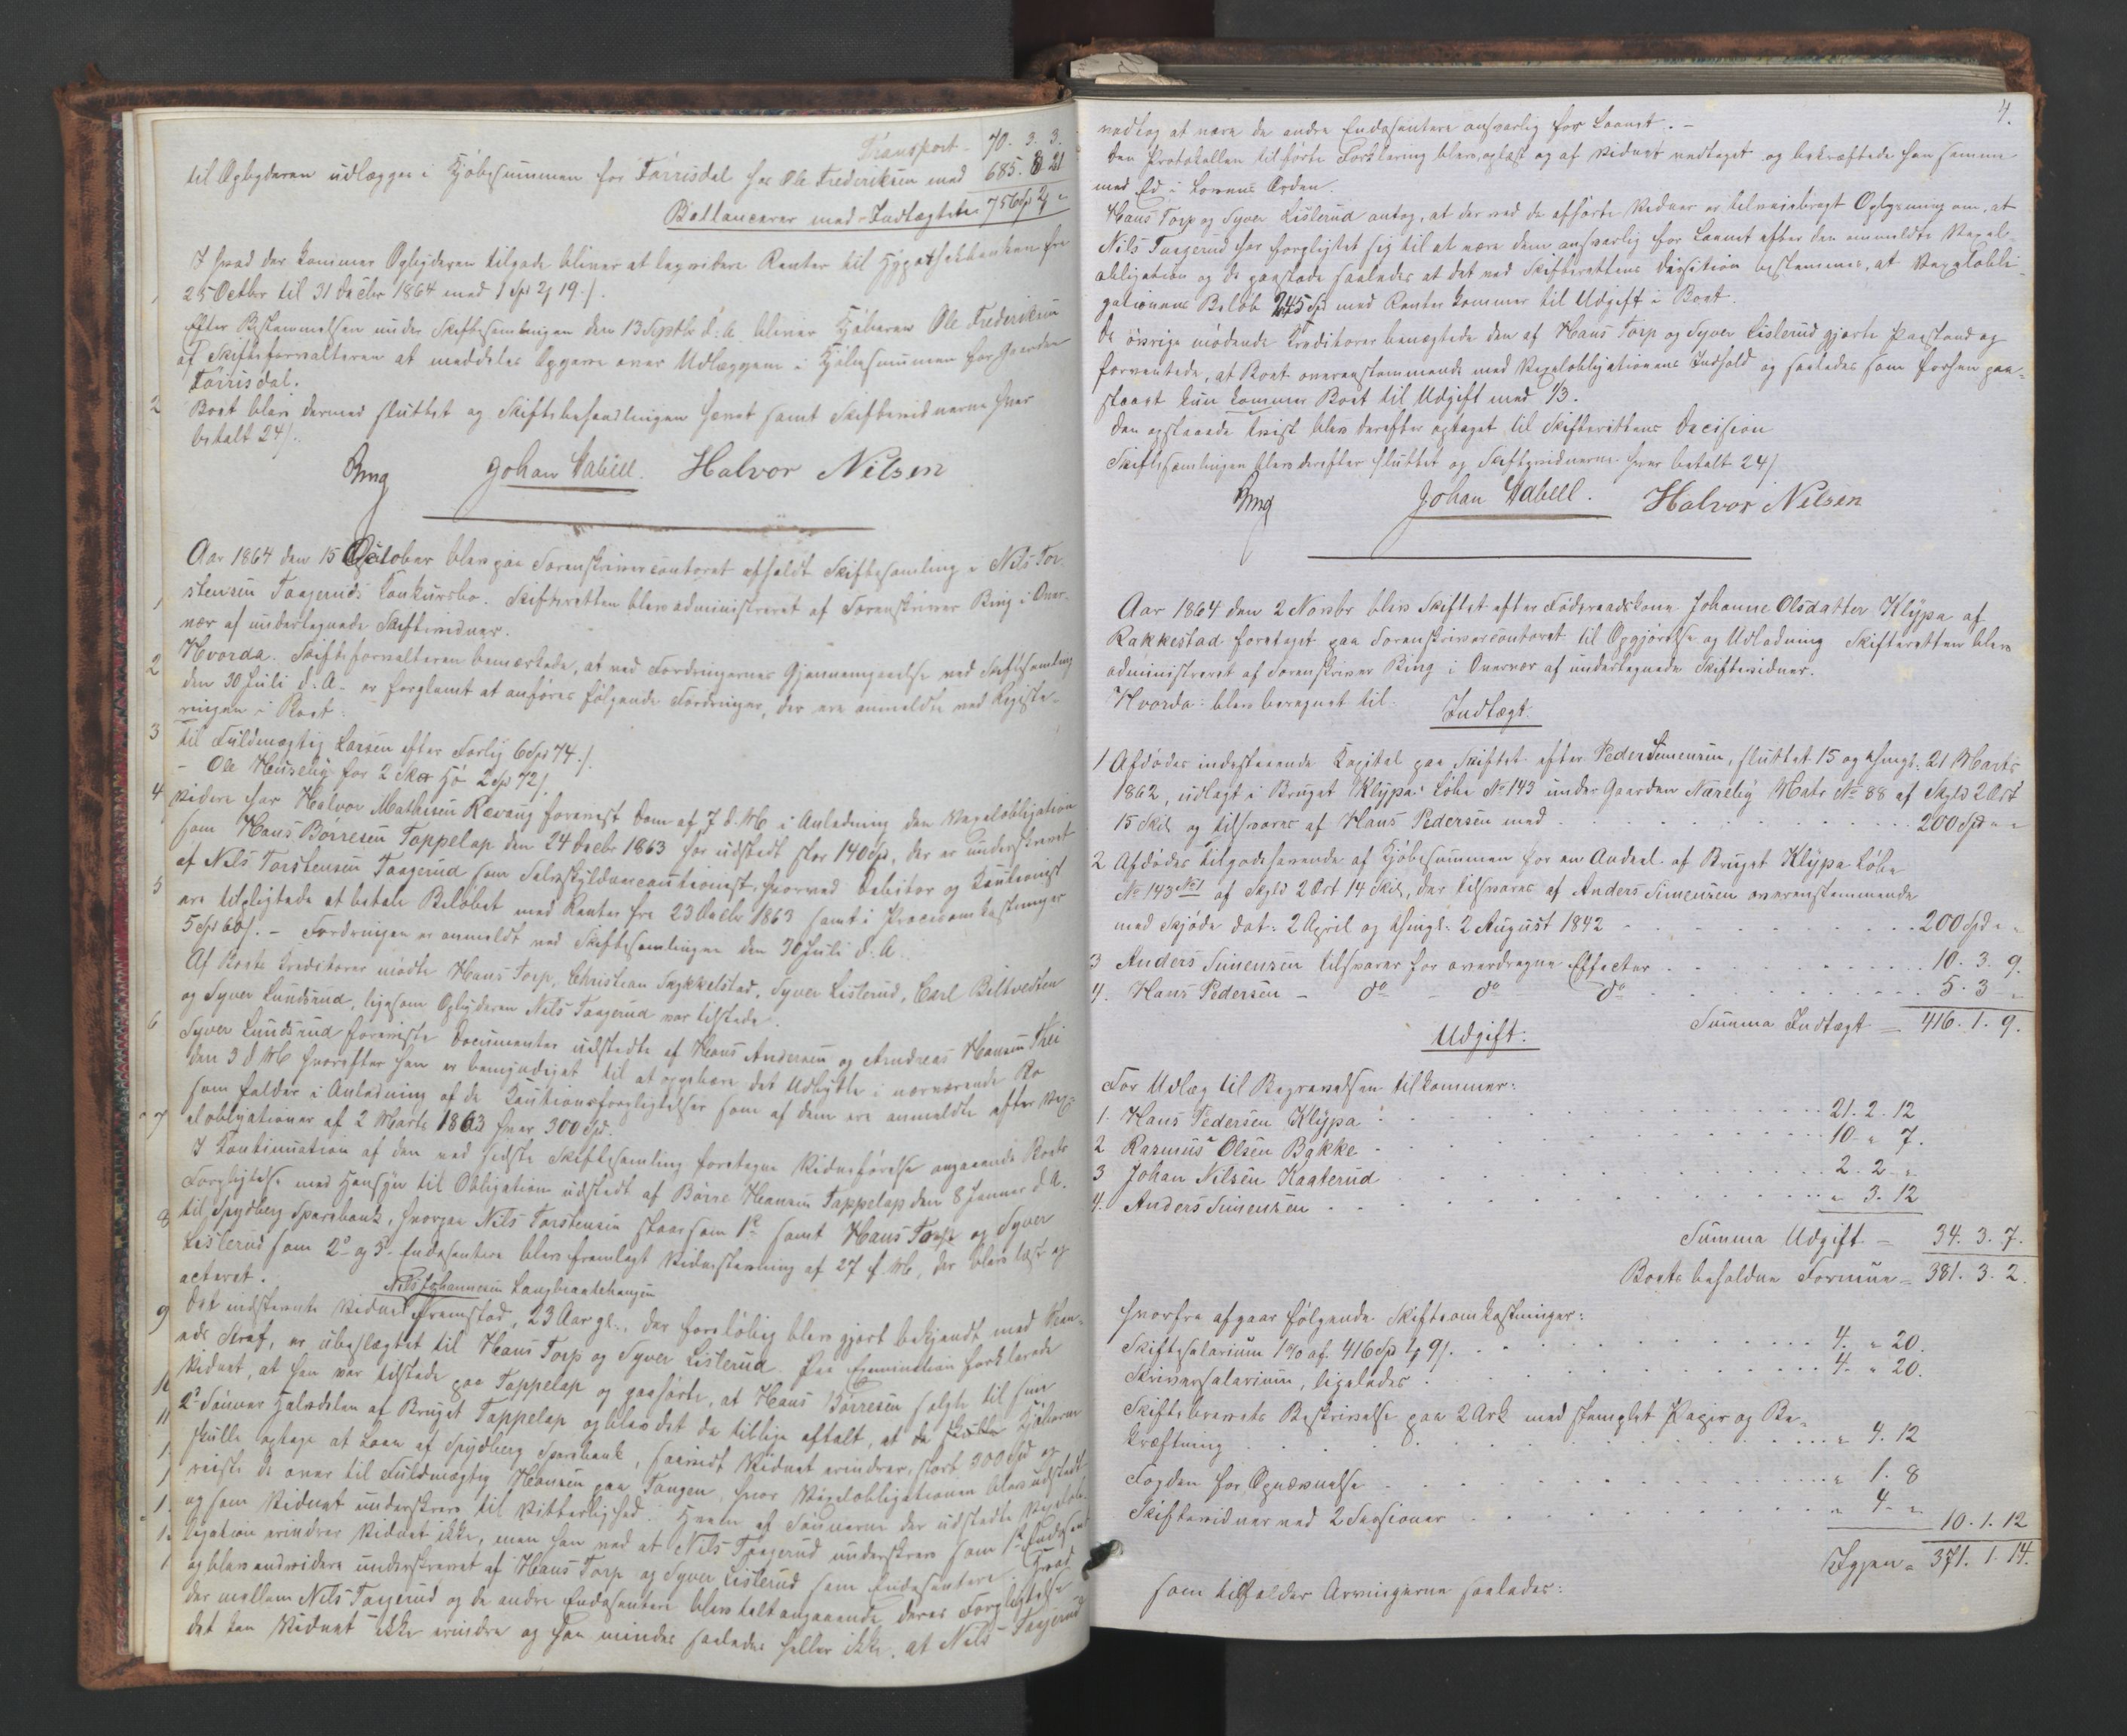 Transport - 70. 3. 3.
til Opbyderen udlægges i Kjøbesummen for Tørrisdal hos Ole Frederiksen med 685. 21
Ballancerer med Indtægten 756
I hvad der kommer Opbyderen tilgode bliver at beregne Renter til Hypothekbanken fra
25 Octbr til 31 Decbr 1864 med 1 Spd 2 19 s.
Efter Bestemmelsen under Skiftesamlingen den 13 Septbr d. A. bliver Kjøberen Ole Frederiksen
af Skifteforvalteren at meddeles Opgave over Udlæggene i Kjøbesummen for Gaarden
Tørrisdal.
Boet blev dermed sluttet og Skiftebehandlingen hævet samt Skiftevidnerne hver
betalt 24 s.
Bing Johan Vabell. Halvor Nilsen
Aar 1864 den 15 October blev paa Sorenskrivercontoret afholdt Skiftesamling i Nils Tor-
stensen Taageruds Konkursbo. Skifteretten blev administreret af Sorenskriver Bing i Over-
vær af undertegnede Skiftevidner.
Hvorda. Skifteforvalteren bemærkede, at ved Fordringernes Gjennemgaaelse ved Skiftesamling
den 30 Juli d. A. er forglemt at anføres følgende Fordringer, der ere anmeldte ved Registe-
ringen i Boet:
til Fuldmægtig Larsen efter Forlig 6 Spd 74 s.
- Ole Huseby for 2 Hø 2 Spd 72 s.
Videre har Halvor Mathisen Revaug forevist Dom af 7 d. M. i Anledning den Vexelobligation
som Hans Børresen Tappelap den 24 Decbr 1863 har udstedt stor 140 Spd, der er underskrevet
af Nils Torstensen Taagerud som Selvskyldnercautionist, hvorved Debitor og Kautionist
ere tilpligtede at betale Beløbet med Renter fra 23 Decbr 1863 samt i Procesomkostninger
5 Spd 60 s. - Fordringen er anmeldt ved Skiftesamlingen den 30 Juli d. A.
Af Boets Kreditorer mødte Hans Torp, Christian Sykkelstad, Syver Lislerud, Carl Biltvedten
og Syver Lundsrud, ligesom Opbyderen Nils Taagerud var tilstede.
Syver Lundsrud foreviste Documenter udstedte af Hans Andersen og Andreas Hansen
den 3 d. M. hvorefter han er bemyndiget til at oppebære det Udbytte i nærværende Bo
som falder i Anledning af de Kautionsforpligtelser som af dem ere anmeldte efter Vex-
elobligationer af 2 Marts 1863 hver 300 Spd.
I Kontinuation af den ved sidste Skiftesamling foretagne Vidneførelse angaaende Boets
Forpligtelse med Hensyn til Obligation udstedt af Børre Hansen Tappelap den 8 Januar d. A.
til Spydberg Sparebank, hvorpaa Nils Torstensen staar som 1e samt Hans Torp og Syver
Lislerud som 2e og 3e Endosentere blev fremlagt Vidnestevning af 27 f. M., der blev læst og
acteret.
Nils Johannesen Langbraatehaugen
Det indstevnte Vidne fremstod, 23 Aar gl., der foreløbig blev gjort bekjendt med
eds Straf, er ubeslægtet til Hans Torp og Syver Lislerud. Paa Examination forklarede
Vidnet, at han var tilstede paa Tappelap og paahørte, at Hans Børresen solgte til sine
2e Sønner Halvdelen af Bruget Tappelap og blev det da tillige aftalt, at de Kjøberne
skulle optage et Laan af Spydberg Sparebank, saavidt Vidnet erindrer, stort 300 Spd og
reiste de over til Fuldmægtig Hansen paa Tangen, hvor Vexelobligationen blev udstedt
og som Vidnet underskrev til Vitterlighed. Hvem af Sønnerne der udstedte Vexelob-
ligation erindrer Vidnet ikke, men han ved at Nils Taagerud underskrev som 1e Endosent
og blev endvidere underskrevet af Hans Torp og Syver Lislerud som Endosentere. Hvad
der mellem Nils Taagerud og de andre Endosentere blev talt angaaende deres Forpligtelse
det kan Vidnet ikke erindre og han mindes saaledes heller ikke, at Nils Taagerud
4.
vedtog at være de andre Endosentere ansvarlig for Laanet. -
Den Protokollen tilførte Forklaring blev oplæst og af Vidnet vedtaget og bekræftede han samme
med Ed i Lovens Orden.
Hans Torp og Syver Lislerud antog, at der ved de afhørte Vidner er tilveiebragt Oplysning om, at
Nils Taagerud har forpligtet sig til at være dem ansvarlig for Laanet efter den anmeldte Vexel-
obligation og de paastode saaledes at det ved Skifterettens Decision bestemmes, at Vexelobli-
gationens Beløb 245 Spd med Renter kommer til Udgift i Boet.
De øvrige mødende Kreditorer benægtede den af Hans Torp og Syver Lislerud gjorte Paastand og
forventede, at Boet overenstemmende med Vexelobligationens Indhold og saaledes som forhen paa-
staaet kun kommer Boet til Udgift med 1/3.
Den opstaaede Tvist blev derefter optaget til Skifterettens Decision
Skiftesamlingen blev derefter sluttet og Skiftevidnerne hver betalt 24 s
Bing Johan Vabell. Halvor Nilsen
Aar 1864 den 2 Novbr blev Skiftet efter Føderaadskone Johanne Olsdatter Klÿpa af
Rakkestad foretaget paa Sorenskrivercontoret til Opgjørelse og Udlodning Skifteretten blev
administreret af Sorenskriver Bing i Overvær af undertegnede Skiftevidner.
Hvorda: blev beregnet til
Indtægt.
1 Afdødes indestaaende Kapital paa Skiftet efter Peder Simensen, sluttet 15 og thingl. 21 Marts
1862, udlagt i Bruget Klÿpa Løbe No 143 under Gaarden Næreby Matr No 88 af Skyld 2 Ort
15 Skil og tilsvares af Hans Pedersen med . . . 200 Spd " "
2 Afdødes tilgodehavende af Kjøbesummen for en Andeel af Bruget Klÿpa Løbe
No 143 No 1 af Skyld 2 Ort 14 Skil, der tilsvares af Anders Simensen overenstemmende
med Skjøde dat: 2 April og thingl: 2 August 1842 . . . 200 Spd " "
3 Anders Simensen tilsvarer for overdragne Effecter . . . 10. 3. 9.
4. Hans Pedersen - do - do do . . . 5. 3 "
Summa Indtægt = 416. 1. 9.
Udgift:
For Udlæg til Begravelsen tilkommer:
1. Hans Pedersen Klÿpa . . . 21. 2. 12
2 Rasmus Olsen Bakke . . . 10. " 7.
3 Johan Nilsen Kaaterud . . . 2. 2. "
4. Anders Simensen . . . " 3. 12
Summa Udgift - 34. 3. 7.
Boets beholdne Formue = 381. 3. 2.
hvorfra afgaar følgende Skifteomkostninger:
Skiftesalarium 1 % af 416 Spd 1 9 s. . . . 4. " 20.
Skriversalarium, ligeledes . . . 4. " 20.
Skiftebrevets Beskrivelse paa 2 Ark med stemplet Papir og Be-
kræftning . . . " 4. 12
Fogden for Opnævnelse . . . " 1. 8
Skiftevidner ved 2 Sessioner . . . " 4. "
10. 1. 12
Igjen = 371. 1. 14.
som tilfalder Arvingerne saaledes: